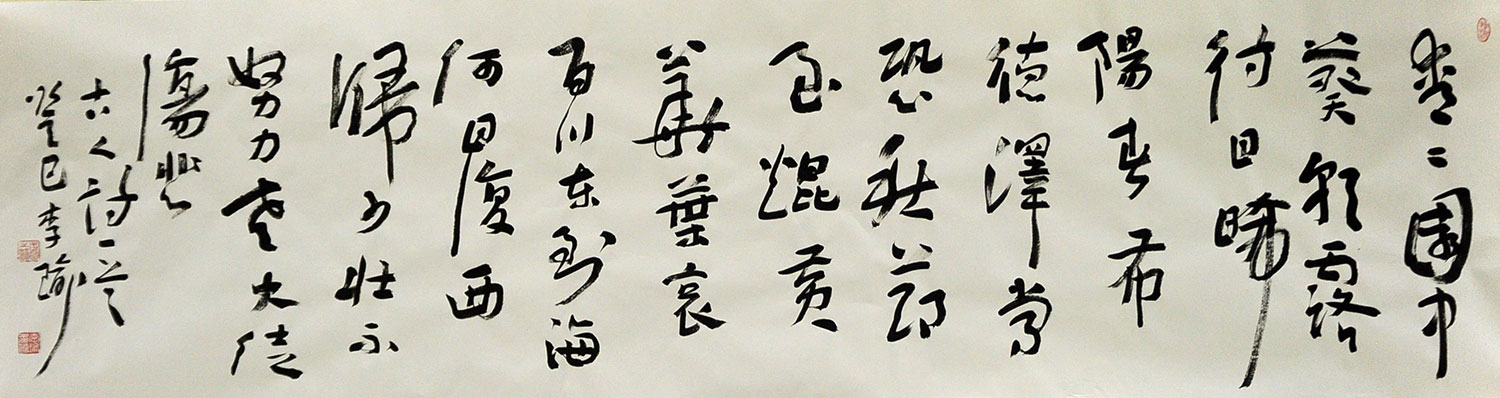 青〻園中
葵朝露
待日晞
陽春布
德澤常
恐秋節
至焜黃
華葉衰
百川東到海
何日復西
歸少壯不
努力老大徒
傷悲
古人詩一首
癸巳李瑜